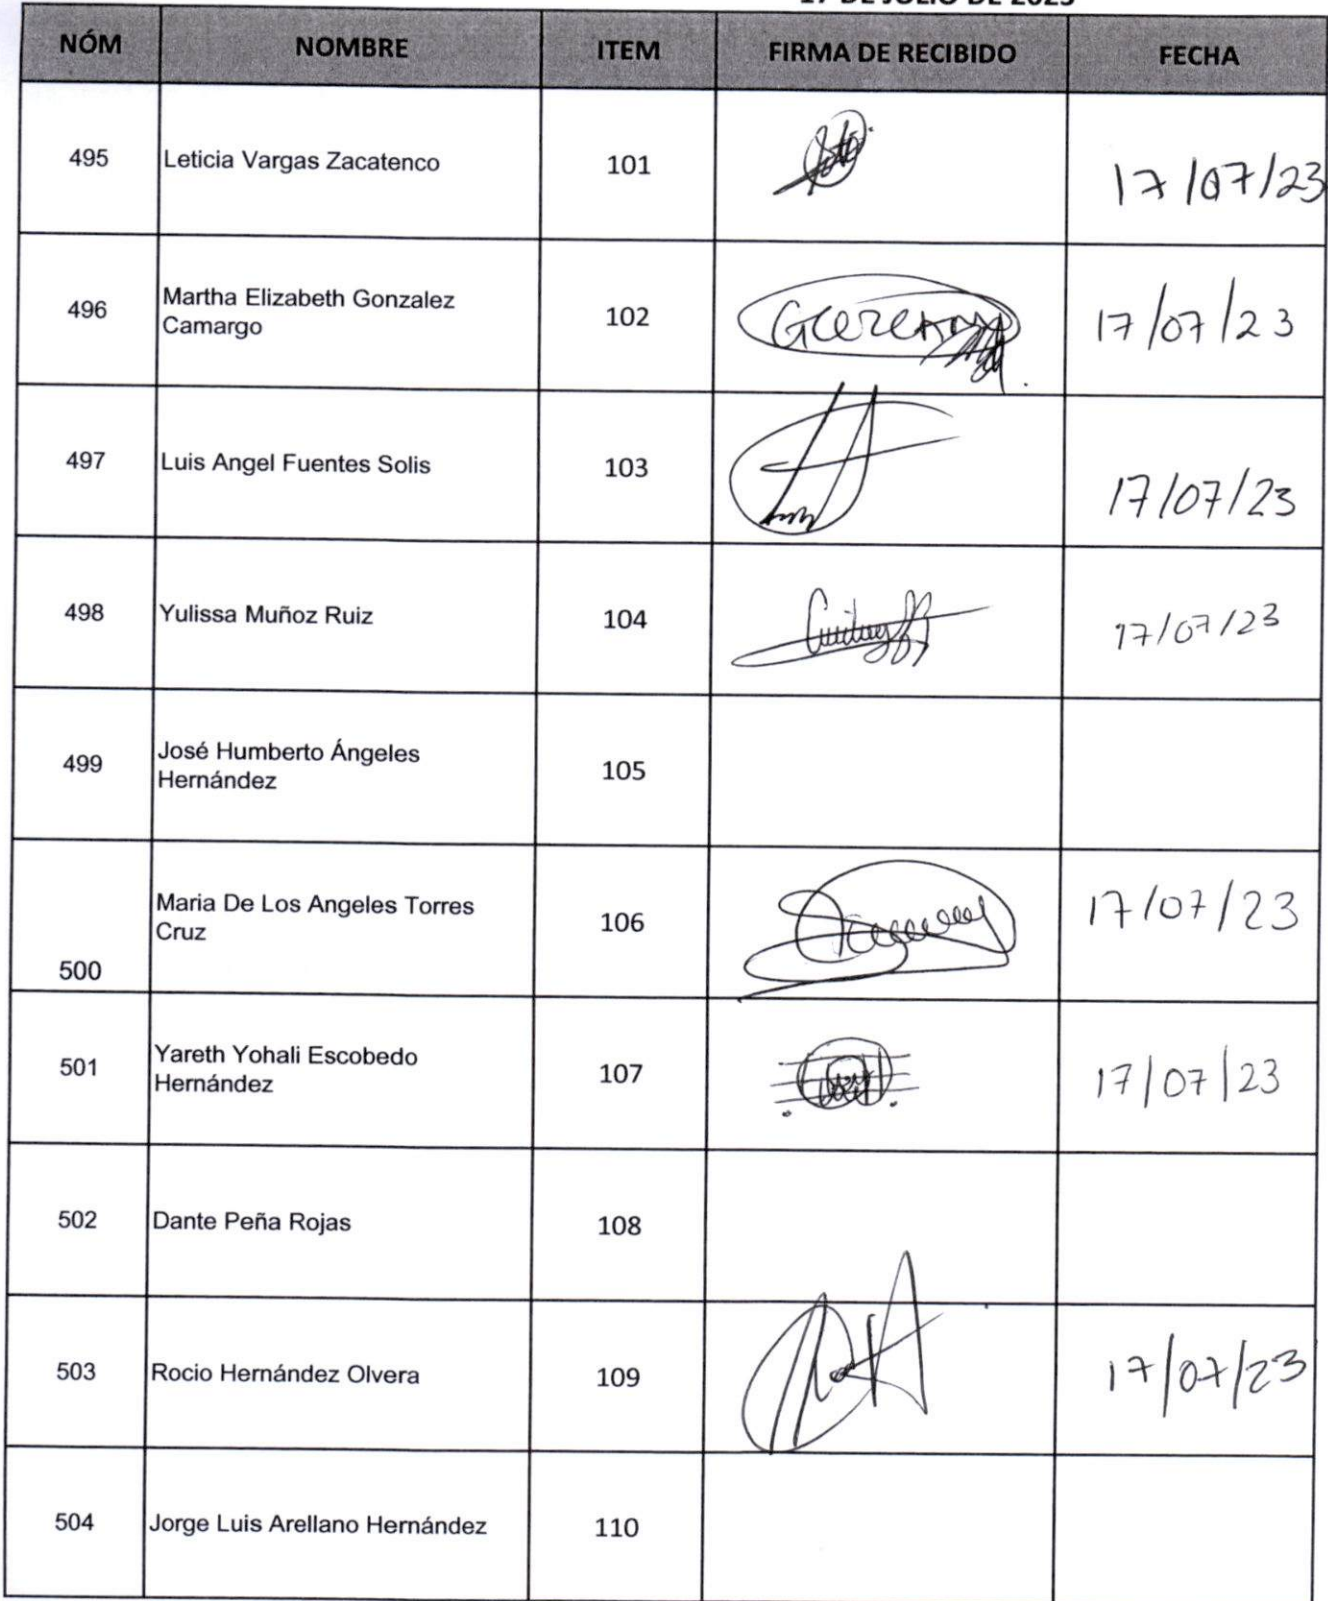 17 DE JULIO DE 2023
NÓM NOMBRE ITEM FIRMA DE RECIBIDO FECHA
495 Leticia Vargas Zacatenco 101 17/07/23
496 Martha Elizabeth Gonzalez
Camargo 102 17/07/23
497 Luis Angel Fuentes Solis 103 17/07/23
498 Yulissa Muñoz Ruiz 104 17/07/23
499 José Humberto Ángeles
Hernández 105
500 Maria De Los Angeles Torres
Cruz 106 17/07/23
501 Yareth Yohali Escobedo
Hernández 107 17/07/23
502 Dante Peña Rojas 108
503 Rocio Hernández Olvera 109 17/07/23
504 Jorge Luis Arellano Hernández 110